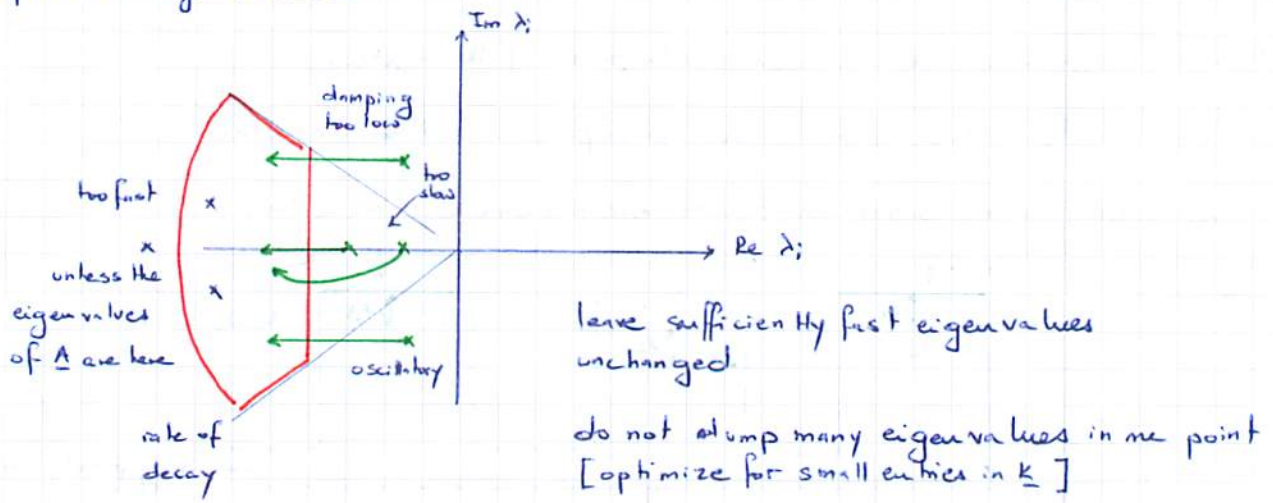 Im λi
damping
too low
too
slow
too fast
Re λi
unless the
eigenvalues
of A are here
oscillatory
rate of
decay
leave sufficiently fast eigenvalues
unchanged
do not clump many eigenvalues in one point
[optimize for small entries in K]